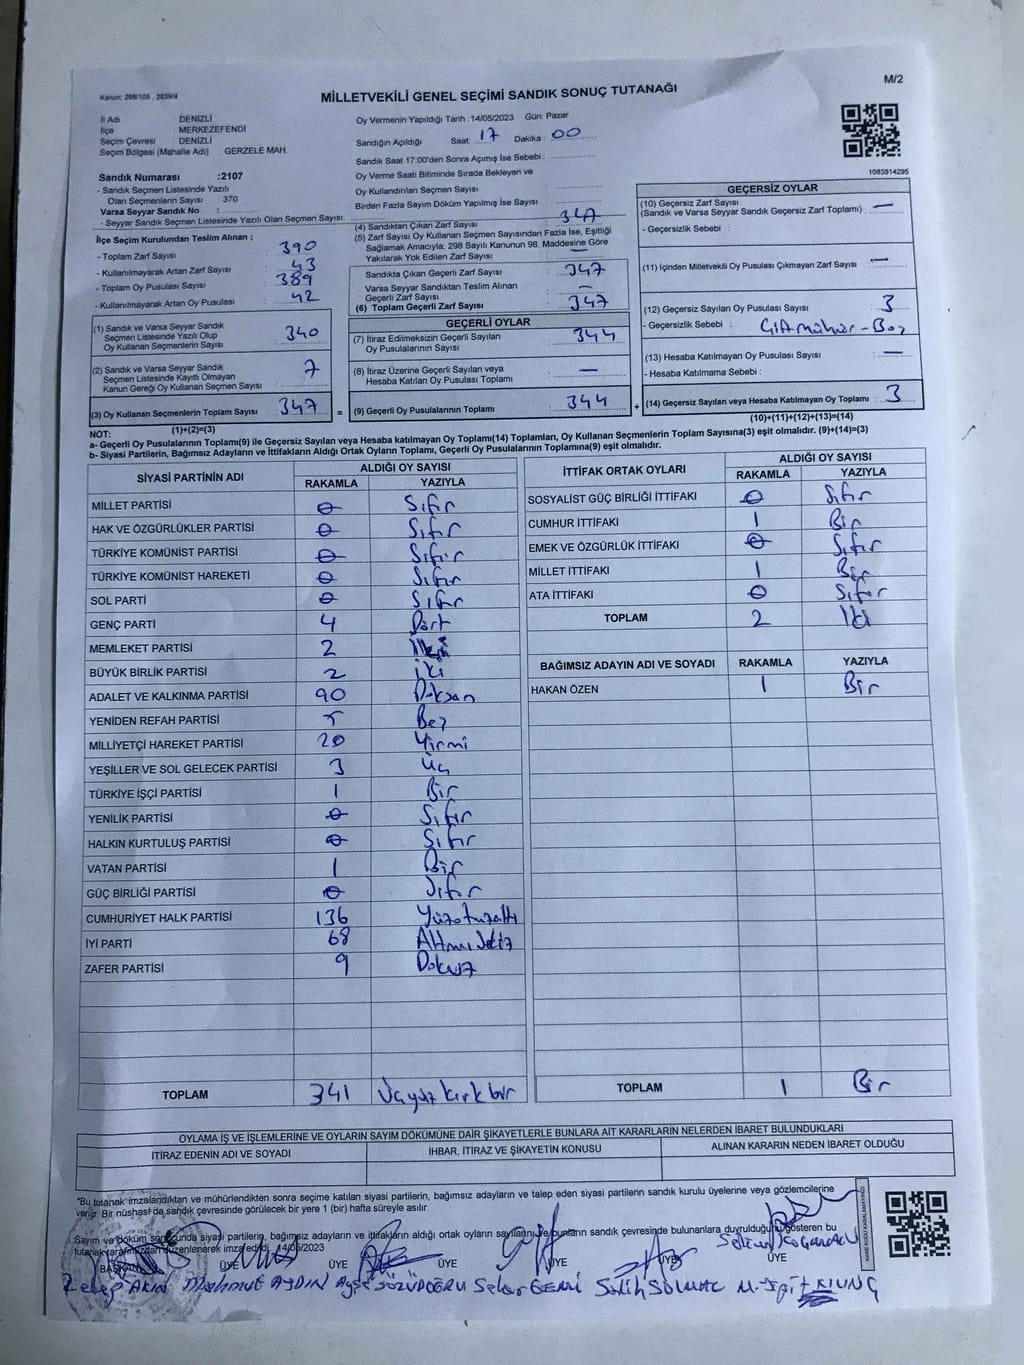 Kanun: 298/105 , 2839/4
M/2
MİLLETVEKİLİ GENEL SEÇİMİ SANDIK SONUÇ TUTANAĞI
İl Adı DENİZLİ
İlçe MERKEZEFENDİ
Seçim Çevresi : DENİZLİ
Seçim Bölgesi (Mahalle Adı) : GERZELE MAH.
Sandık Numarası :2107
- Sandık Seçmen Listesinde Yazılı
Olan Seçmenlerin Sayısı : 370
Varsa Seyyar Sandık No :
- Seyyar Sandık Seçmen Listesinde Yazılı Olan Seçmen Sayısı:
Oy Vermenin Yapıldığı Tarih : 14/05/2023 Gün: Pazar
Sandığın Açıldığı Saat: 17 Dakika : 00
Sandık Saat 17:00'den Sonra Açımış İse Sebebi :
Oy Verme Saati Bitiminde Sırada Bekleyen ve
Oy Kullandırılan Seçmen Sayısı :
Birden Fazla Sayım Döküm Yapılmış İse Sayısı :
1083814295
İlçe Seçim Kurulundan Teslim Alınan ;
- Toplam Zarf Sayısı : 390
- Kullanılmayarak Artan Zarf Sayısı : 43
- Toplam Oy Pusulası Sayısı : 389
- Kullanılmayarak Artan Oy Pusulası : 42
(1) Sandık ve Varsa Seyyar Sandık
Seçmen Listesinde Yazılı Olup
Oy Kullanan Seçmenlerin Sayısı : 340
(2) Sandık ve Varsa Seyyar Sandık
Seçmen Listesinde Kayıtlı Olmayan
Kanun Gereği Oy Kullanan Seçmen Sayısı : 7
(3) Oy Kullanan Seçmenlerin Toplam Sayısı : 347
(1)+(2)=(3)
(4) Sandıktan Çıkan Zarf Sayısı : 347
(5) Zarf Sayısı Oy Kullanan Seçmen Sayısından Fazla İse, Eşitliği
Sağlamak Amacıyla, 298 Sayılı Kanunun 98. Maddesine Göre
Yakılarak Yok Edilen Zarf Sayısı : —
Sandıkta Çıkan Geçerli Zarf Sayısı : 347
Varsa Seyyar Sandıktan Teslim Alınan
Geçerli Zarf Sayısı : —
(6) Toplam Geçerli Zarf Sayısı : 347
GEÇERLİ OYLAR
(7) İtiraz Edilmeksizin Geçerli Sayılan
Oy Pusulalarının Sayısı : 344
(8) İtiraz Üzerine Geçerli Sayılan veya
Hesaba Katılan Oy Pusulası Toplamı : —
= (9) Geçerli Oy Pusulalarının Toplamı : 344 +
GEÇERSİZ OYLAR
(10) Geçersiz Zarf Sayısı
(Sandık ve Varsa Seyyar Sandık Geçersiz Zarf Toplamı) : —
- Geçersizlik Sebebi :
(11) İçinden Milletvekili Oy Pusulası Çıkmayan Zarf Sayısı : —
(12) Geçersiz Sayılan Oy Pusulası Sayısı : 3
- Geçersizlik Sebebi : Çift mühür - Boş
(13) Hesaba Katılmayan Oy Pusulası Sayısı : —
- Hesaba Katılmama Sebebi :
(14) Geçersiz Sayılan veya Hesaba Katılmayan Oy Toplamı : 3
(10)+(11)+(12)+(13)=(14)
NOT:
a- Geçerli Oy Pusulalarının Toplamı(9) ile Geçersiz Sayılan veya Hesaba katılmayan Oy Toplamı(14) Toplamları, Oy Kullanan Seçmenlerin Toplam Sayısına(3) eşit olmalıdır. (9)+(14)=(3)
b- Siyasi Partilerin, Bağımsız Adayların ve İttifakların Aldığı Ortak Oyların Toplamı, Geçerli Oy Pusulalarının Toplamına(9) eşit olmalıdır.
SİYASİ PARTİNİN ADI ALDIĞI OY SAYISI
RAKAMLA YAZIYLA
MİLLET PARTİSİ 0 Sıfır
HAK VE ÖZGÜRLÜKLER PARTİSİ 0 Sıfır
TÜRKİYE KOMÜNİST PARTİSİ 0 Sıfır
TÜRKİYE KOMÜNİST HAREKETİ 0 Sıfır
SOL PARTİ 0 Sıfır
GENÇ PARTİ 4 Dört
MEMLEKET PARTİSİ 2
BÜYÜK BİRLİK PARTİSİ 2 iki
ADALET VE KALKINMA PARTİSİ 90 Doksan
YENİDEN REFAH PARTİSİ 5 Beş
MİLLİYETÇİ HAREKET PARTİSİ 20 Yirmi
YEŞİLLER VE SOL GELECEK PARTİSİ 3 Üç
TÜRKİYE İŞÇİ PARTİSİ 1 Bir
YENİLİK PARTİSİ 0 Sıfır
HALKIN KURTULUŞ PARTİSİ 0 Sıfır
VATAN PARTİSİ 1 Bir
GÜÇ BİRLİĞİ PARTİSİ 0 Sıfır
CUMHURİYET HALK PARTİSİ 136 Yüzotuzaltı
İYİ PARTİ 68 Altmışsekiz
ZAFER PARTİSİ 9 Dokuz
TOPLAM 341 Üçyüz kırk bir
İTTİFAK ORTAK OYLARI ALDIĞI OY SAYISI
RAKAMLA YAZIYLA
SOSYALİST GÜÇ BİRLİĞİ İTTİFAKI 0 Sıfır
CUMHUR İTTİFAKI 1 Bir
EMEK VE ÖZGÜRLÜK İTTİFAKI 0 Sıfır
MİLLET İTTİFAKI 1 Bir
ATA İTTİFAKI 0 Sıfır
TOPLAM 2 İki
BAĞIMSIZ ADAYIN ADI VE SOYADI RAKAMLA YAZIYLA
HAKAN ÖZEN 1 Bir
TOPLAM 1 Bir
OYLAMA İŞ VE İŞLEMLERİNE VE OYLARIN SAYIM DÖKÜMÜNE DAİR ŞİKAYETLERLE BUNLARA AİT KARARLARIN NELERDEN İBARET BULUNDUKLARI
İTİRAZ EDENİN ADI VE SOYADI İHBAR, İTİRAZ VE ŞİKAYETİN KONUSU ALINAN KARARIN NEDEN İBARET OLDUĞU
*Bu tutanak imzalandıktan ve mühürlendikten sonra seçime katılan siyasi partilerin, bağımsız adayların ve talep eden siyasi partilerin sandık kurulu üyelerine veya gözlemcilerine
verilir. Bir nüshası da sandık çevresinde görülecek bir yere 1 (bir) hafta süreyle asılır.
Sayım ve döküm sonucunda siyasi partilerin, bağımsız adayların ve ittifakların aldığı ortak oyların sayılarını ve bunların sandık çevresinde bulunanlara duyrulduğunu gösteren bu
tutanak tarafımızdan düzenlenerek imza edildi. 14/05/2023
BAŞKAN ÜYE ÜYE ÜYE ÜYE ÜYE
Recep AKIN Mahmut AYDIN Ayşe SÖZÜDOĞRU